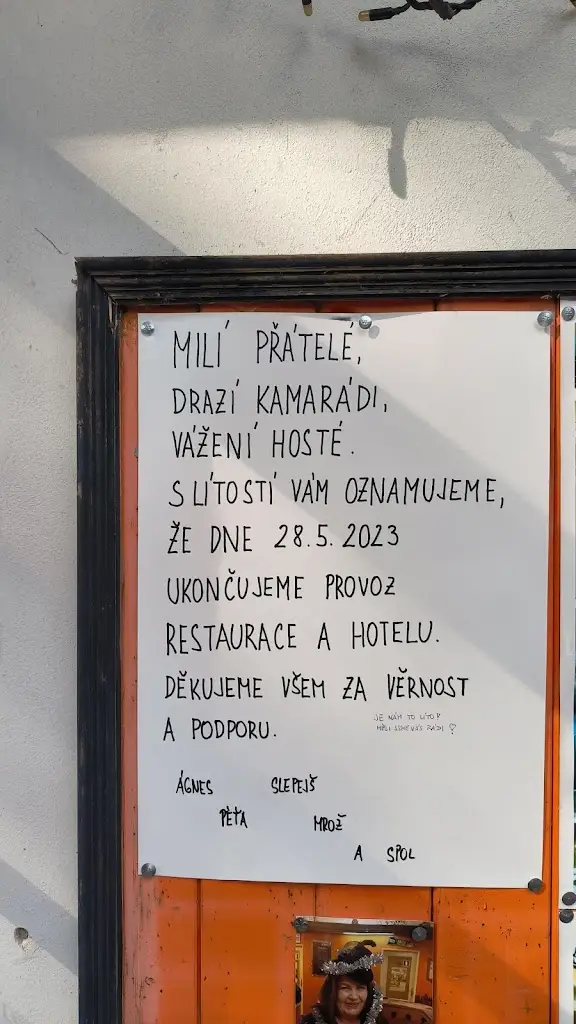 MILÍ PŘÁTELÉ,
DRAZÍ KAMARÁDI,
VÁŽENÍ HOSTÉ.
S LÍTOSTÍ VÁM OZNAMUJEME,
ŽE DNE 28.5.2023
UKONČUJEME PROVOZ
RESTAURACE A HOTELU.
DĚKUJEME VŠEM ZA VĚRNOST
A PODPORU.
JE NÁM TO LÍTO
MĚLI JSME VÁS RÁDI ♡
ÁGNES SLEPEJŠ
PÉŤA MROŽ
A SPOL